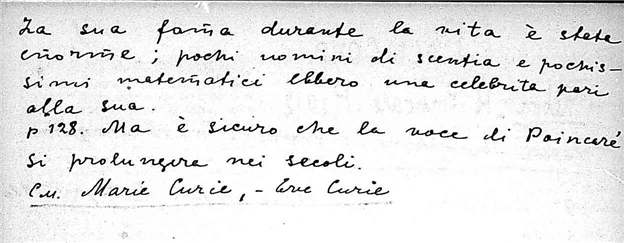 La sua fama durante la vita è stata
enorme; pochi uomini di scentia e pochis-
simi matematici ebbero una celebrita pari
alla sua.
p 128. Ma è sicuro che la voce di Poincaré
si prolungera nei secoli.
Cu. Marie Curie, - Eve Curie